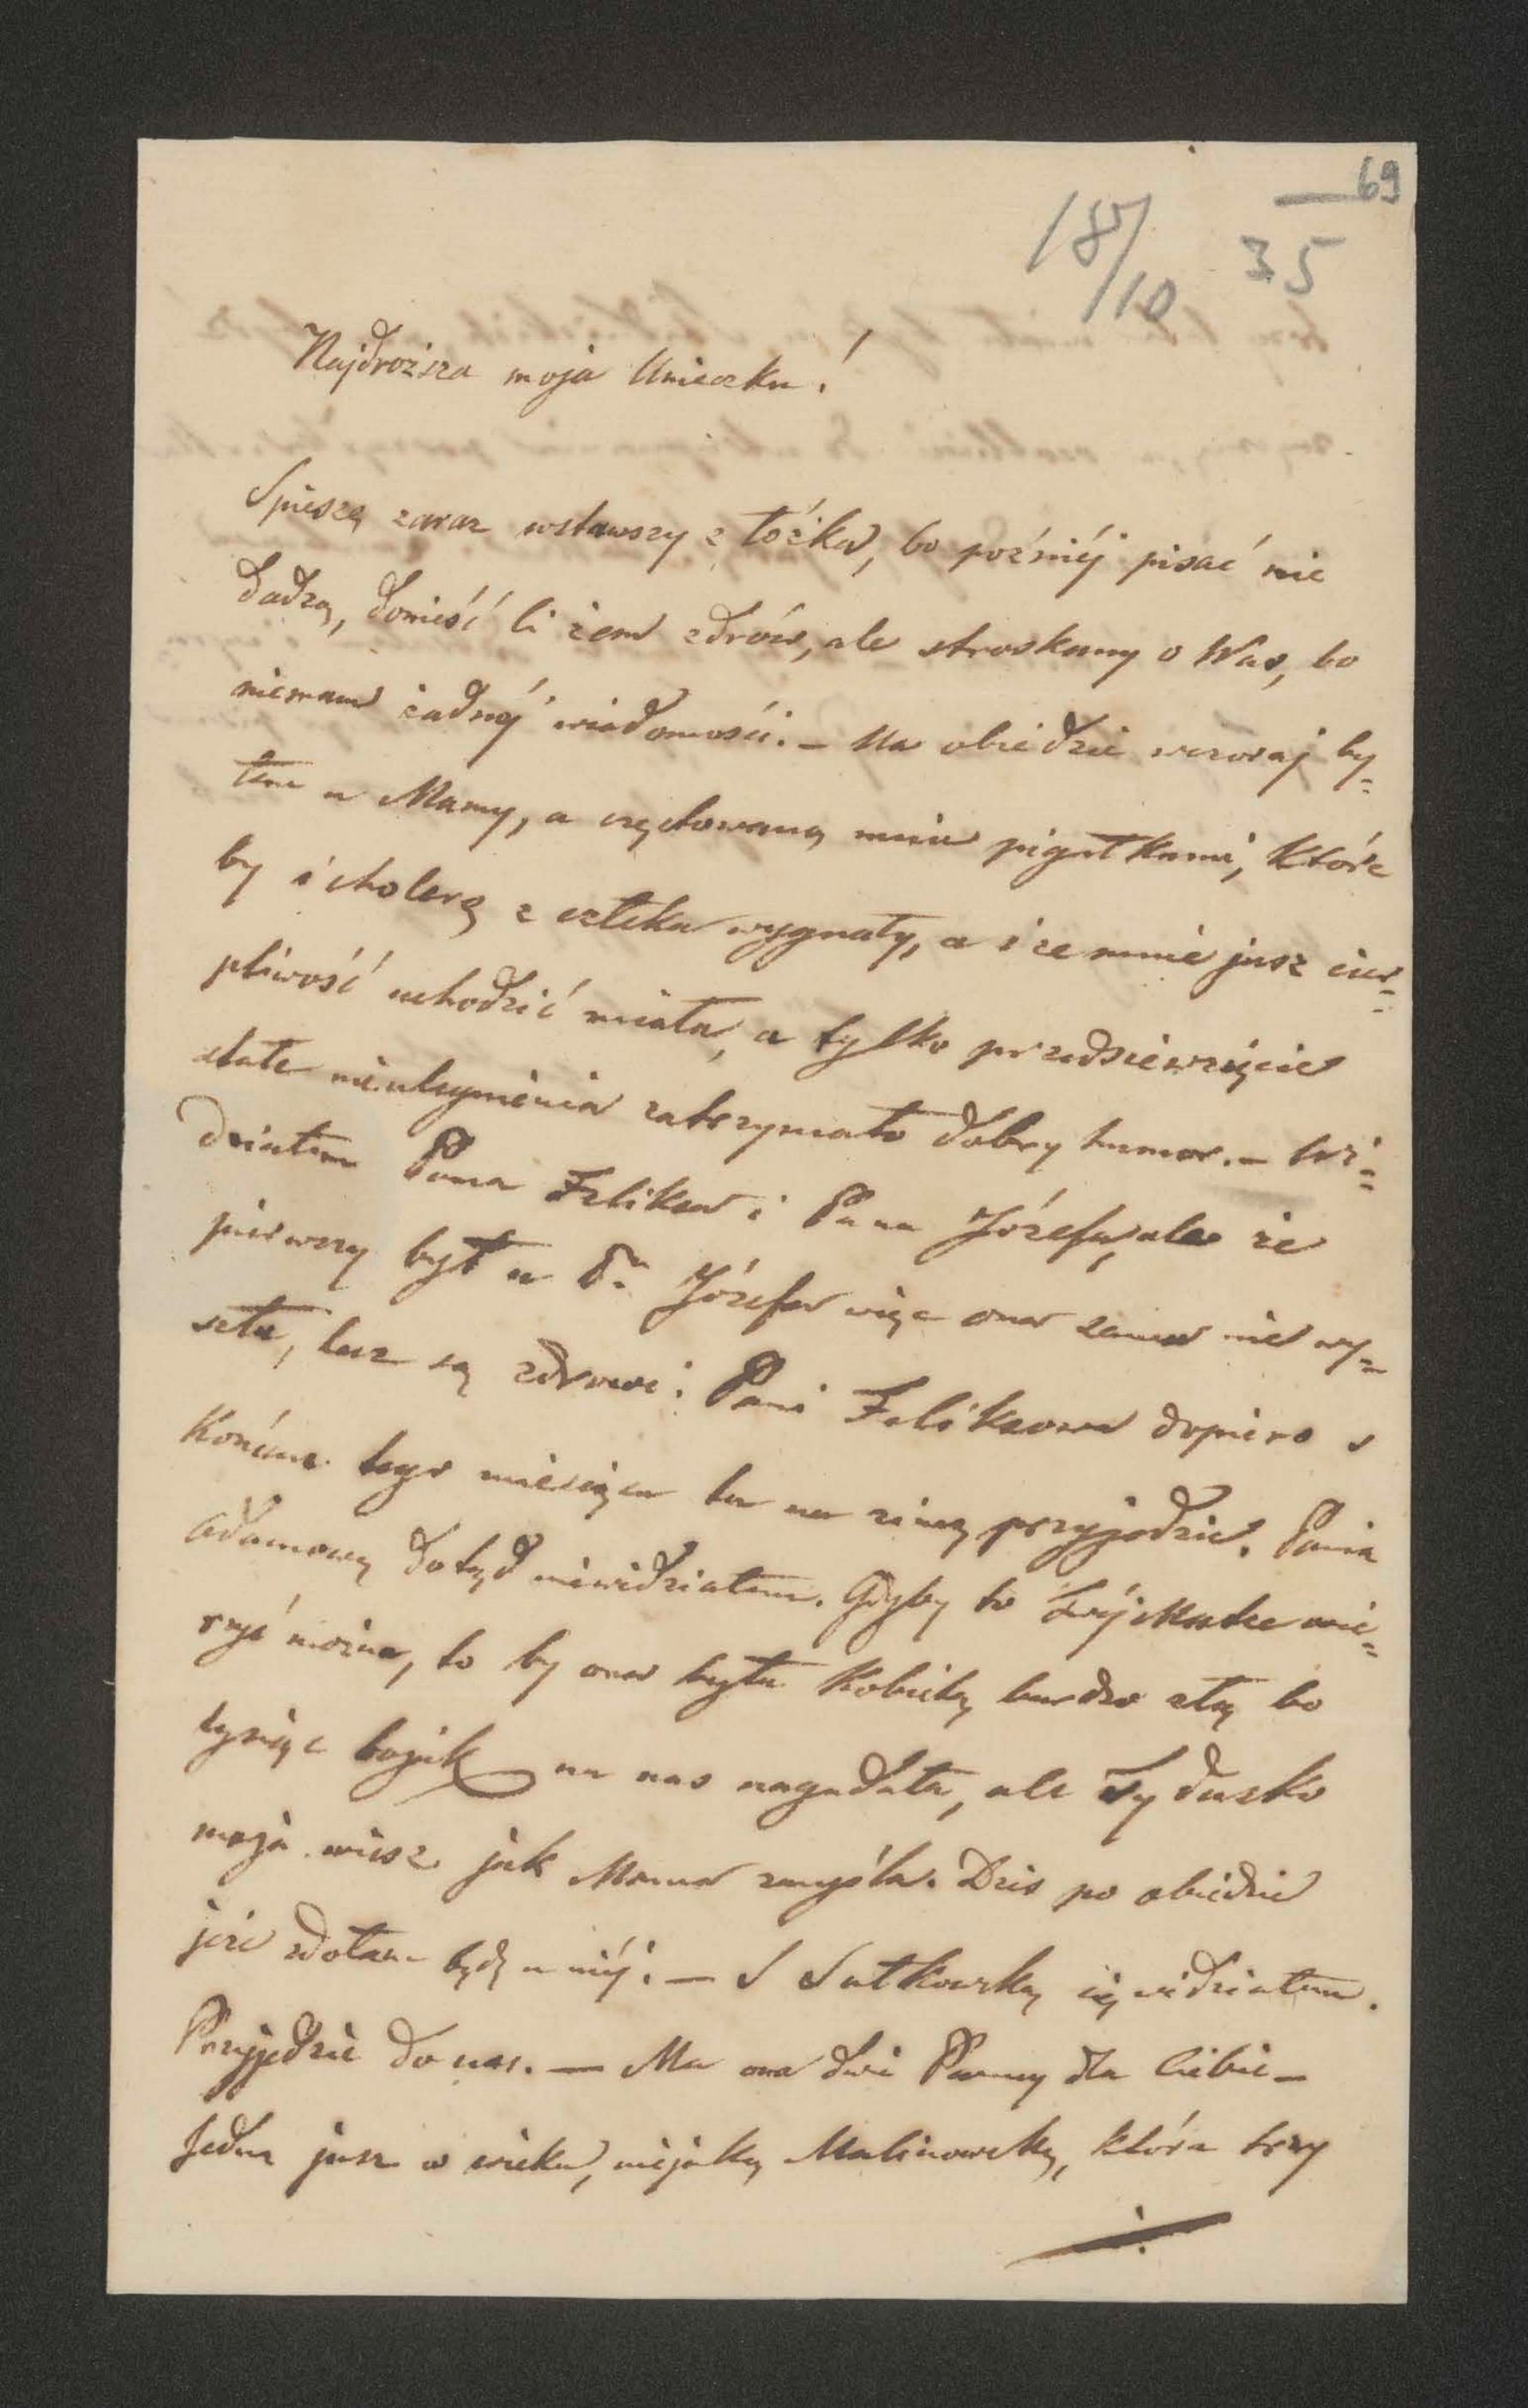 69
18/10 35
Najdroższa moja Unieczku!
Spieszę zaraz wstawszy z łóżka, bo pozniéj pisać nie
dadzą, donieść Ci żem zdrów, ale stroskany o Was, bo
niemam żadnéj wiadomości. – Na obiedzie wczoraj by=
łem u Mamy, a częstowaną mnie pigułkami, które
by i cholerę z człeka wygnały, a i ze mnie jusz cier=
pliwość uchodzić miała, a tylko przedsiewzięcie
stałe nieuchymienia zatrzymało dobry humor. – Wi=
działem Pana Felixa i Pana Józefa, ale że
pierwszy był u Pa Józefa więc ona sama nie wy=
szła, lecz są zdrowi. Pani Felixowa dopiero s
Końcem tego miesiąca tu na zimę przyjedzie. Panią
Adamową dotąd niewidziałem. Gdyby to Twéj Matce wie=
rzyć można, to by ona była Kobietą bardzo złą bo
tysiąc bajek na nas nagadała, ale Ty duszko
moja wiesz jak Mama zmyśla. Dzis po obiedzie
jeże zdołam będę u niéj. – S Sułkowską się widziałem.
Przyjedzie do nas. – Ma ona dwie Panny dla Ciebie –
Jedna jusz w wieku, niejaką Malinowską, która trzy